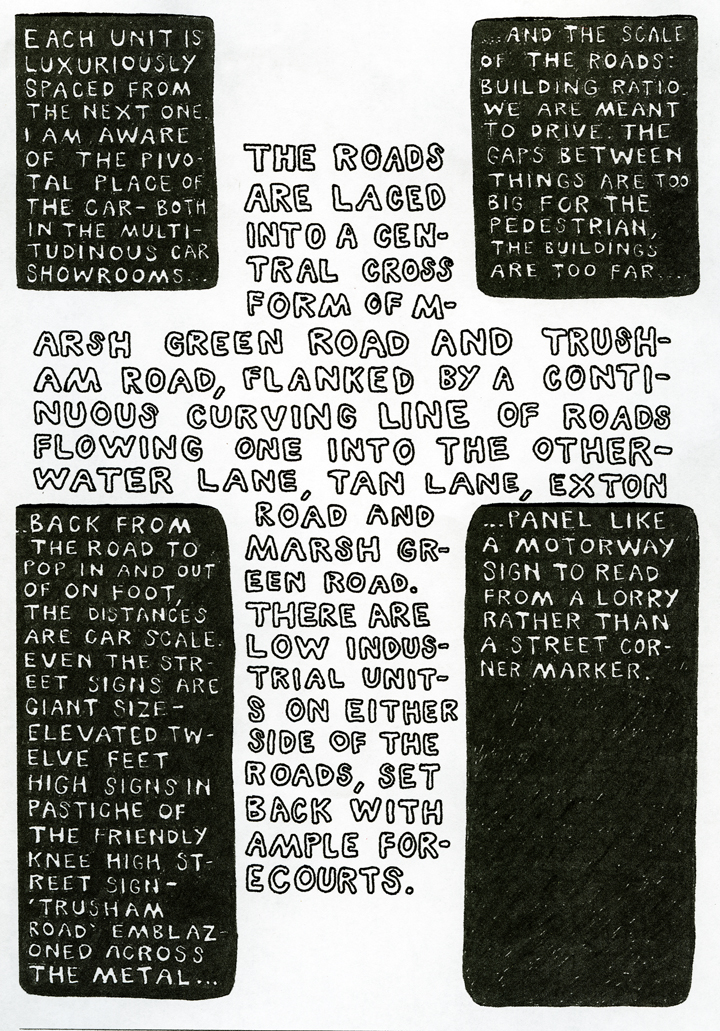 THE ROADS
ARE LACED
INTO A CEN-
TRAL CROSS
FORM OF M-
ARSH GREEN ROAD AND TRUSH-
AM ROAD, FLANKED BY A CONTI-
NUOUS CURVING LINE OF ROADS
FLOWING ONE INTO THE OTHER-
WATER LANE, TAN LANE, EXTON
ROAD AND
MARSH GR-
EEN ROAD.
THERE ARE
LOW INDUS-
TRIAL UNIT-
S ON EITHER
SIDE OF THE
ROADS, SET
BACK WITH
AMPLE FOR-
ECOURTS.
EACH UNIT IS
LUXURIOUSLY
SPACED FROM
THE NEXT ONE.
I AM AWARE
OF THE PIVO-
TAL PLACE OF
THE CAR- BOTH
IN THE MULTI-
TUDINOUS CAR
SHOWROOMS...
...AND THE SCALE
OF THE ROADS:
BUILDING RATIO.
WE ARE MEANT
TO DRIVE. THE
GAPS BETWEEN
THINGS ARE TOO
BIG FOR THE
PEDESTRIAN,
THE BUILDINGS
ARE TOO FAR....
...BACK FROM
THE ROAD TO
POP IN AND OUT
OF ON FOOT,
THE DISTANCES
ARE CAR SCALE.
EVEN THE STR-
EET SIGNS ARE
GIANT SIZE-
ELEVATED TW-
ELVE FEET
HIGH SIGNS IN
PASTICHE OF
THE FRIENDLY
KNEE HIGH ST-
REET SIGN-
'TRUSHAM
ROAD' EMBLAZ-
ONED ACROSS
THE METAL...
...PANEL LIKE
A MOTORWAY
SIGN TO READ
FROM A LORRY
RATHER THAN
A STREET COR-
NER MARKER.